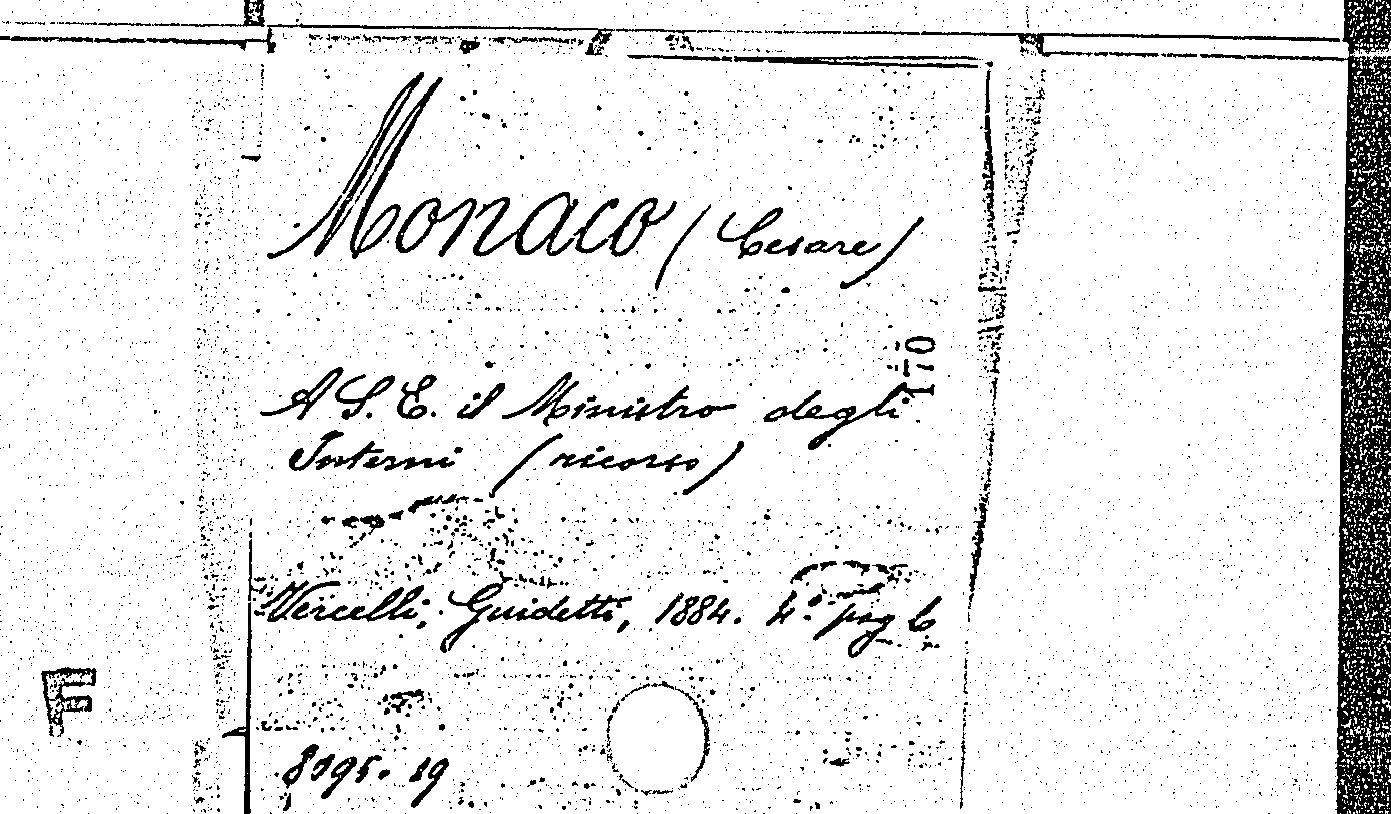 Monaco (Cesare)
170
A S. E. il Ministro degli
Interni (ricorso)
Vercelli, Guidetti, 1884. 4.° pag 6
8095. 19
F